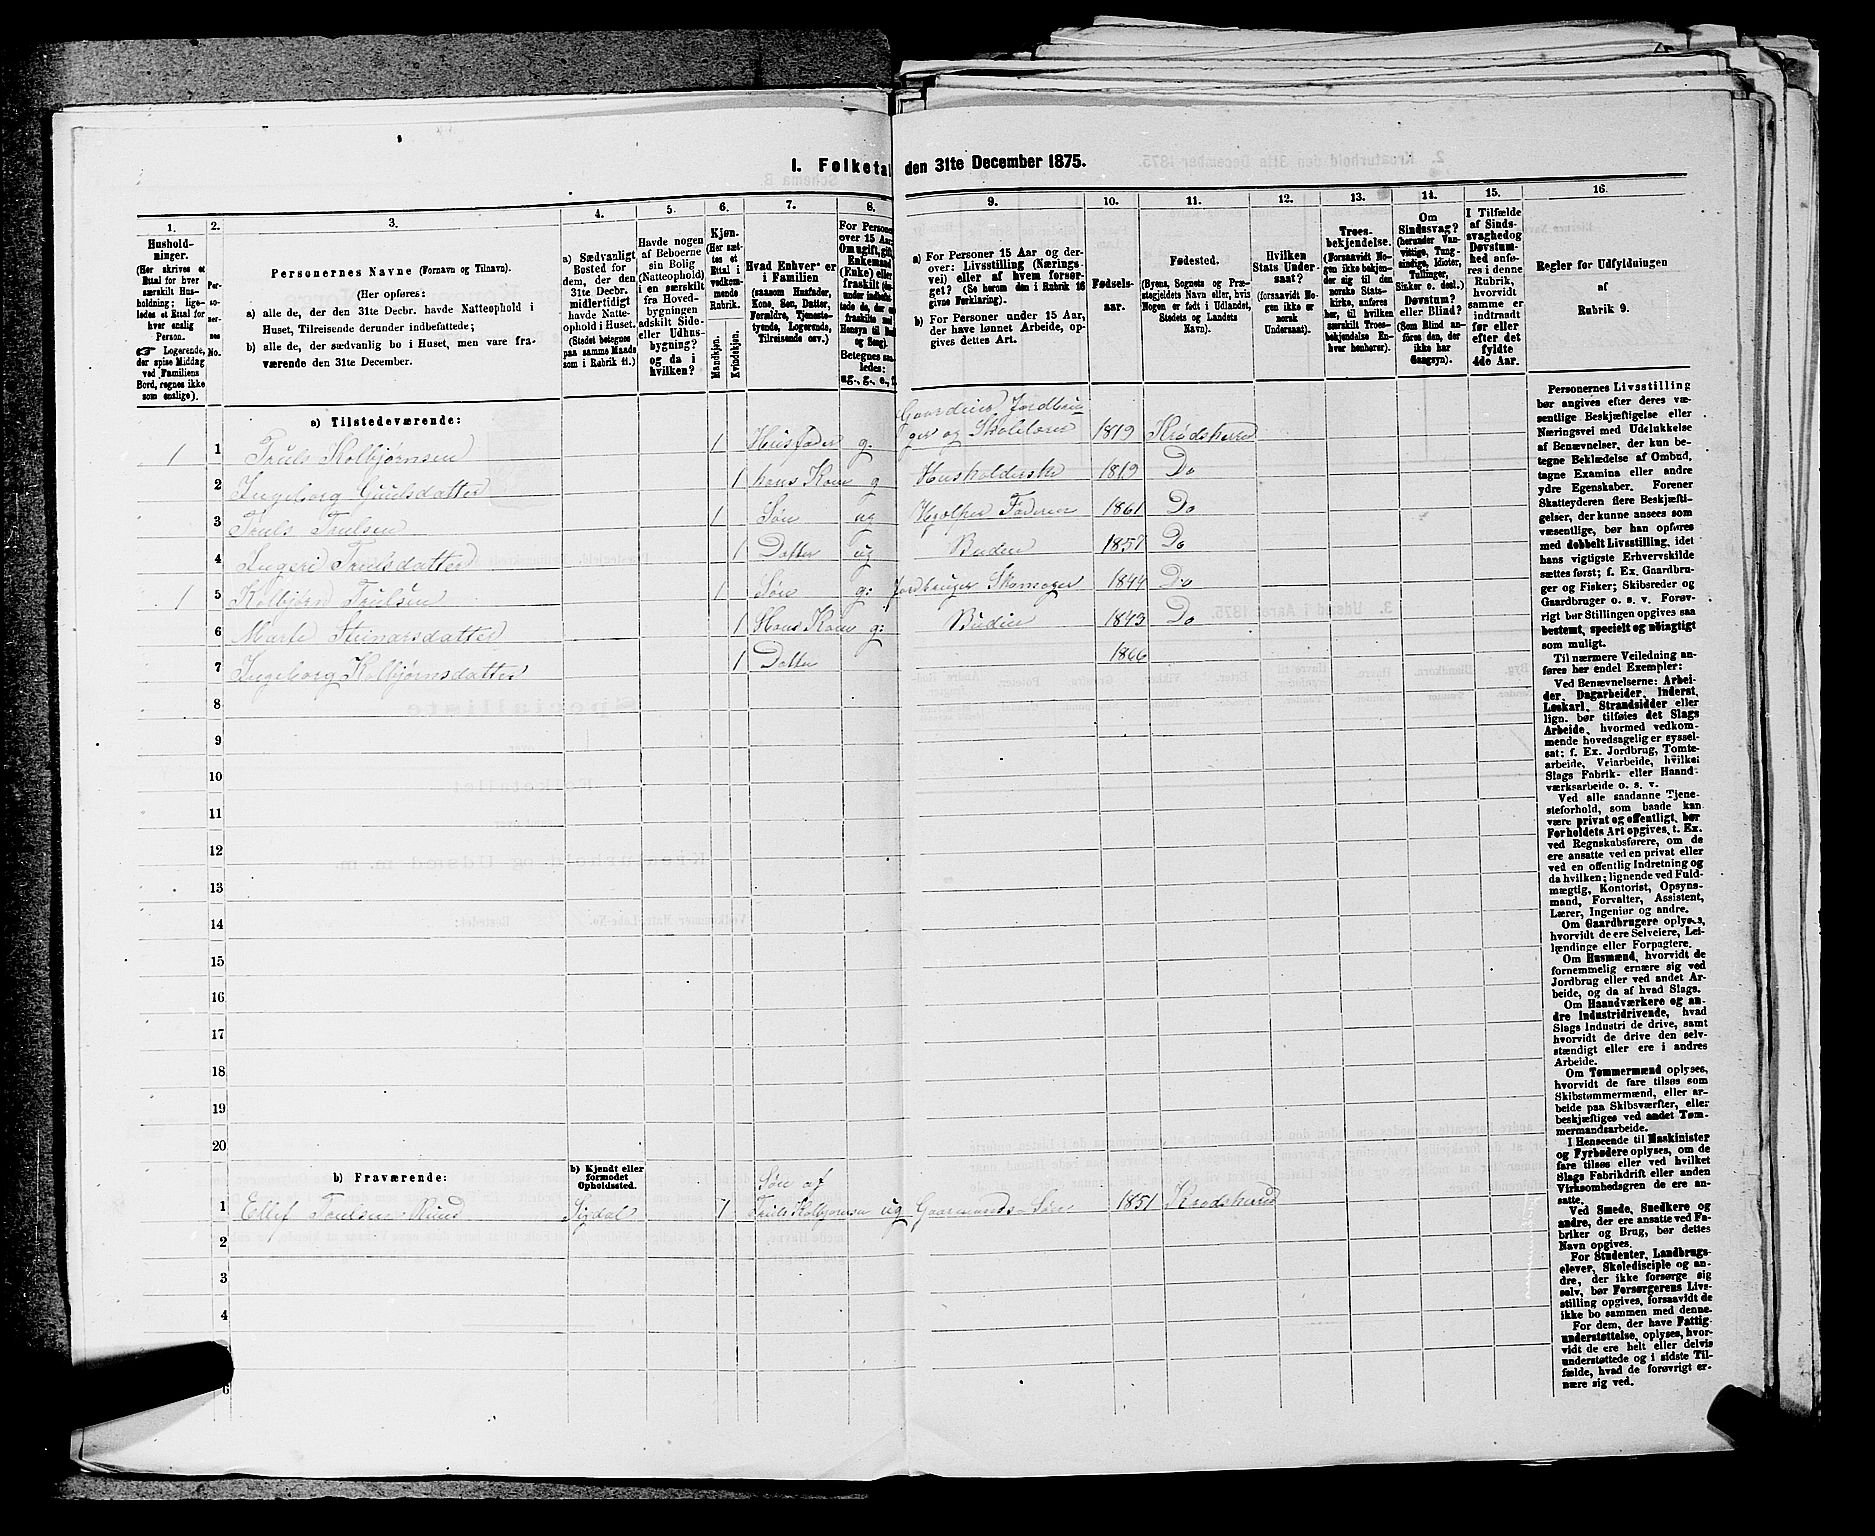 I. Folketal den 31te December 1875.
1. 2. 3. 4. 5. 6. 7. 8. 9. 10. 11. 12. 13. 14. 15. 16.
Husholdninger.
(Her skrives et
Ettal for hver
særskilt Husholdning; ligeledes et Ettal for
hver enslig
Person.
☞ Logerende,
der spise Middag
ved Familiens
Bord, regnes ikke
som enslige).
Personernes No.
Personernes Navne (Fornavn og Tilnavn).
(Her opføres:
a) alle de, der den 31te Decbr. havde Natteophold i
Huset, Tilreisende derunder indbefattede;
b) alle de, der sædvanlig bo i Huset, men vare fraværende den 31te December.
a) Sædvanligt
Bosted for
dem, der den
31te Decbr.
midlertidigt
havde Natteophold i Huset.
(Stedet betegnes
paa samme Maade
som i Rubrik 11.)
Havde nogen
af Beboerne
sin Bolig
(Natteophold)
i en særskilt
fra Hovedbygningen
adskilt Side- eller Udhusbygning?
og da i
hvilken?
Kjøn.
(Her sættes et
Ettal i
vedkommende
Rubrik.
Mandkjøn.
Kvindekjøn.
Hvad Enhver er
i Familien
(saasom Husfader,
Kone, Søn, Datter,
Forældre, Tjenestetyende, Logerende,
Tilreisende osv.)
For Personer
over 15 Aar:
Om ugift, gift,
Enkemand
(Enke) eller
fraskilt
Betegnes saaledes:
ug., g., e., f.
a) For Personer 15 Aar og derover: Livsstilling (Næringsvei) eller af hvem forsørget? (Se herom den i Rubrik 16
givne Forklaring).
b) For Personer under 15 Aar,
der have lønnet Arbeide, opgives dettes Art.
Fødselsaar.
Fødested.
(Byens, Sognets og Præstegjeldets Navn eller, hvis
Nogen er født i Udlandet,
Stedets og Landets
Navn).
Hvilken
Stats Undersaat?
(forsaavidt Nogen ikke er
norsk
Undersaat).
Troesbekjendelse.
(Forsaavidt Nogen ikke bekjender sig til den
norske Statskirke, anføres
her, til hvilken
særskilt Troesbekjendelse Enhver henhører).
Om
Sindssvag?
(herunder Vanvittige, Tungsindige, Idioter,
Tullinger,
Sinker o. desl.)
Døvstum?
eller Blind?
(Som Blind anføres den, der
ikke har
Gangsyn).
I Tilfælde
af Sindssvaghed og
Døvstumhed anføres i denne
Rubrik,
hvorvidt
samme er
indtraadt
før eller
efter det
fyldte
4de Aar.
Regler for Udfyldningen
af
Rubrik 9.
a) Tilstedeværende:
1 1 Truls Kolbjørnsen 1 Husfader g. Gaardeier Jordbruger og Skolelærer 1819 Krødsherred
2 Ingeborg Guulsdatter 1 hans Kone g Husholderske 1819 Do
3 Truls Trulsen 1 Søn ug Hjælper Faderen 1861 Do
4 Ingeri Trulsdatter 1 Datter ug Budeie 1857 Do
1 5 Kolbjørn Trulsen 1 Søn g: Jordbruger Skomager 1844 Do
6 Marte Steinarsdatter 1 Hans Kone g: Budeie 1843 Do
7 Ingeborg Kolbjørnsdatter 1 Datter 1866
8
9
10
11
12
13
14
15
16
17
18
19
20
b) Fraværende:
b) Kjendt eller
formodet
Opholdssted.
1 Ellef Trulsen Ruud Sigdal 1 Søn af Truls Kolbjørnsen ug Gaarmands-Søn 1851 Krødsherred
2
3
4
6
Personernes Livsstilling
bør angives efter deres væsentlige Beskjæftigelse eller
Næringsvei med Udelukkelse
af Benævnelser, der kun betegne Beklædelse af Ombud,
tagne Examina eller andre
ydre Egenskaber. Forener
Skatteyderen flere Beskjæftigelser, der kunne ansees som
væsentlige, bør han opføres
med dobbelt Livsstilling, idet
hans vigtigste Erhvervskilde
sættes først; f. Ex. Gaardbruger og Fisker; Skibsreder og
Gaardbruger o. s. v. Forøvrigt bør Stillingen opgives saa
bestemt, specielt og nøiagtigt
som muligt.
Til nærmere Veiledning anføres her endel Exempler:
Ved Benævnelserne: Arbeider, Dagarbeider, Inderst,
Løskarl, Strandsidder eller
lign. bør tilføies det Slags
Arbeide, hvormed vedkommende hovedsagelig er sysselsat; f. Ex. Jordbrug, Tomtearbeide, Veiarbeide, hvilket
Slags Fabrik- eller Haandværksarbeide o. s. v.
Ved alle saadanne Tjenesteforhold, som baade kan
være privat og offentligt, bør
Forholdets Art opgives, t. Ex.
ved Regnskabsførere, om de
ere ansatte ved en privat eller
ved en offentlig Indretning og
da hvilken; lignende ved Fuldmægtig, Kontorist, Opsynsmand, Forvalter, Assistent,
Lærer, Ingeniør og andre.
Om Gaardbrugere oplyses,
hvorvidt de ere Selveiere, Leilændinge eller Forpagtere.
Om Husmænd, hvorvidt de
fornemmelig ernære sig ved
Jordbrug eller ved andet Arbeide, og da af hvad Slags.
Om Haandværkere og andre Industridrivende, hvad
Slags Industri de drive, samt
hvorvidt de drive den selvstændigt eller ere i andres
Arbeide.
Om Tømmermænd oplyses,
hvorvidt de fare tilsøs som
Skibstømmermænd, eller arbeide paa Skibsværfter, eller
beskjæftiges ved andet Tømmermandsarbeide.
I Henseende til Maskinister
og Fyrbødere oplyses, om de
fare tilsøs eller ved hvilket
Slags Fabrikdrift eller anden
Virksomhedsgren de ere ansatte.
Ved Smede, Snedkere og
andre, der ere ansatte ved Fabriker og Brug, bør dettes
Navn opgives.
For Studenter, Landbrugselever, Skoledisciple og andre, der ikke forsørge sig
selv, bør Forsørgerens Livsstilling opgives, forsaavidt de
ikke bo sammen med denne.
For dem, der have Fattigunderstøttelse, oplyses, hvorvidt de ere helt eller delvis
understøttede og i sidste Tilfælde, hvad de forøvrigt ernære sig ved.